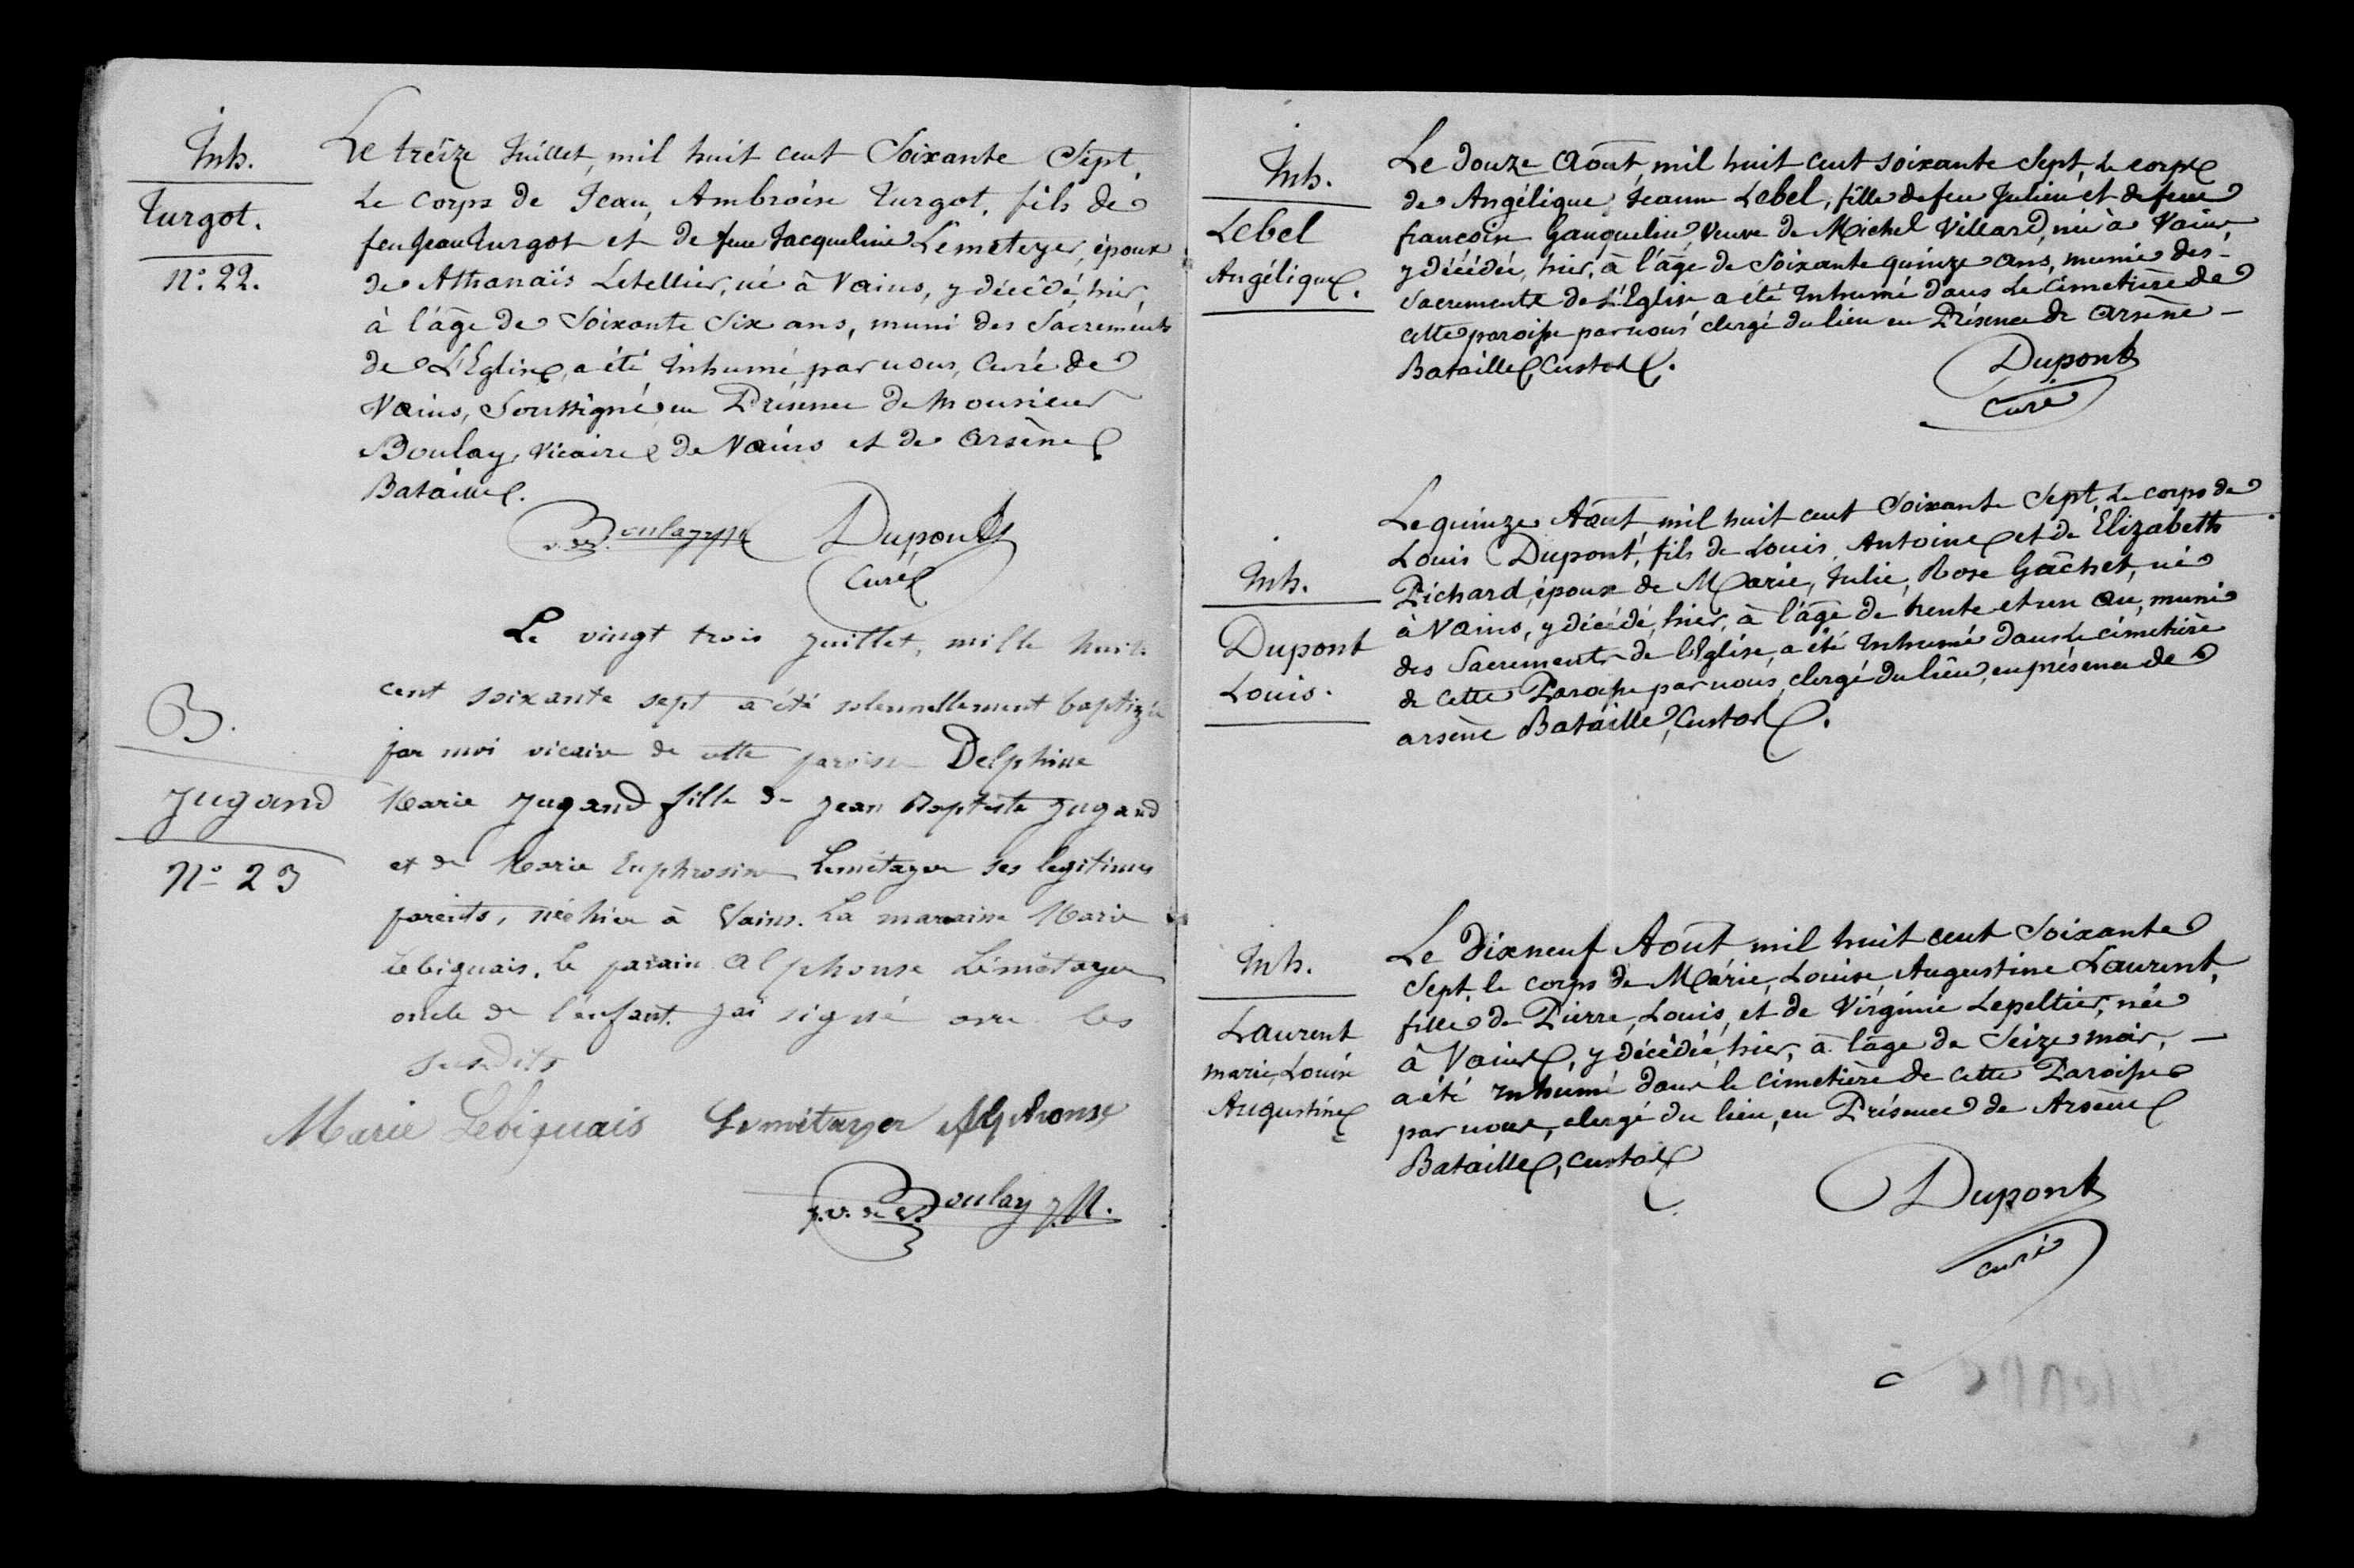 Inh.
Turgot.
N°. 22.
Le treize Juillet, mil huit cent Soixante Sept,
Le Corps de Jean, Ambroise Turgot, fils de
feu Jean Turgot et de feue Jacqueline Lemeteyer, époux
de Athanaïs Letellier, né à Vains, y décédé, hier,
à l'âge de Soixante Six ans, muni des Sacrements
de L'Eglise, a été Inhumé par nous, Curé de
Vains, Soussigné, en Présence de Monsieur
Boulay, Vicaire de Vains et de Arsène
Bataille.
Boulay Dupont
Curé
B.
Jugand
N° 23
Le vingt trois juillet, mille huit
cent soixante sept a été solennellement baptizée
par moi vicaire de cette paroisse Delphine
Marie Jugand fille de Jean Baptiste Jugand
et de Marie Euphrosine Lemétayer ses legitimes
parents, née hier à Vains. La marraine Marie
Lebiguais, le parain Alphonse Lémétayer
oncle de l'enfant. J'ai signé avec les
susdits
Marie Lebiguais Lemétayer Alphonse
Boulay
Inh.
Lebel
Angélique.
Le douze Août, mil huit cent soixante Sept, Le corps
de Angélique, Jeanne Lebel, fille de feu Julien et de feue
françoise Gauquelin, Veuve de Michel Villard, née à Vains,
y décédée, hier, à l'âge de Soixante quinze ans, munie des -
Sacrements de L'Eglise a été Inhumé dans Le Cimetière de
cette paroisse par nous clergé du lieu en Présence de Arsène -
Bataille, Custos.
Dupont
Curé
Inh.
Dupont
Louis.
Le quinze Août mil huit cent Soixante Sept, Le corps de
Louis Dupont, fils de Louis Antoine et de Elizabeth
Pichard, époux de Marie, Julie, Rose Gâchet, né
à Vains, y décédé, hier, à l'âge de trente et un an, muni
des Sacrements de l'Eglise, a été Inhumé dans Le cimetière
de cette Paroisse par nous, clergé du lieu, en présence de
arsène Bataille, Custos.
Inh.
Laurent
marie, Louise
Augustine
Le Dixneuf Août mil huit cent Soixante
Sept, le corps de Marie, Louise, Augustine Laurent,
fille de Pierre, Louis, et de Virginie Lepeltier, née
à Vains, y décédée, hier, à l'âge de Seize mois, -
a été Inhumé dans le Cimetière de cette Paroisse
par nous, clergé du lieu, en Présence de Arsène
Bataille, Custos
Dupont
curé